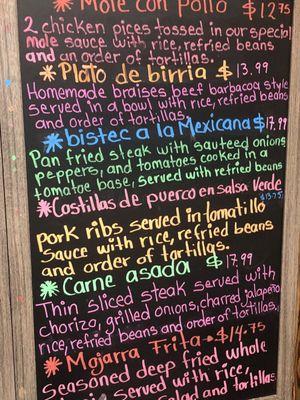 *Mole con Pollo $12.75
2 chicken pices tossed in our special
Mole sauce with rice, refried beans
and an order of tortillas.
*Plato de birria $13.99
Homemade braises beef barbacoa style
served in a bowl with rice, refried beans
and order of tortillas.
*bistec a la Mexicana $17.99
Pan fried steak with sauteed onions
peppers, and tomatoes cooked in a
tomatoe base, served with refried beans
*Costillas de puerco en salsa Verde
$13.75
Pork ribs served in tomatillo
Sauce with rice, refried beans
and order of tortillas.
*Carne asada $17.99
Thin sliced steak served with
chorizo, grilled onions, charred jalapeño
rice, refried beans and order of tortillas.
*Mojarra Frita → $14.75
Seasoned deep fried whole
served with rice,
salad and tortillas